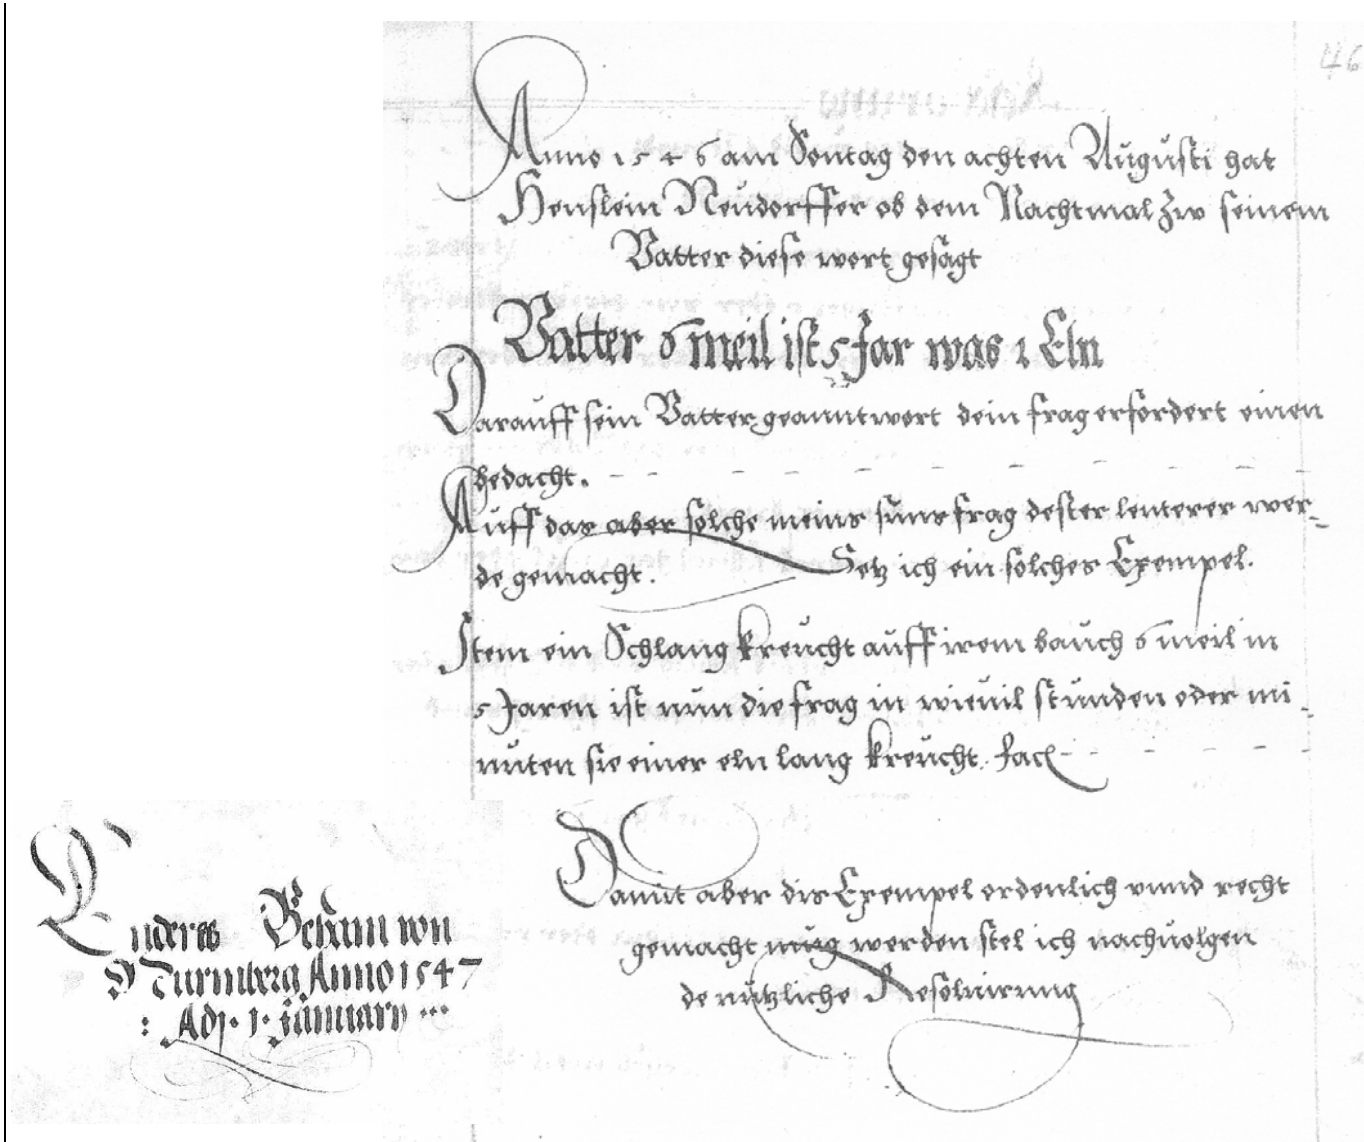 46
Anno 1546 am Sontag den achten Augusti hat
Henslein Neudorffer ob dem Nachtmal zw seinem
Vatter diese wort gesagt
Vatter 6 meil ist 5 Jar was 1 Eln
Darauff sein Vatter geanntwort dein frag erfordert einen
bedacht.
Auff das aber solche meins suns frag dester leuterer wer-
de gemacht. Setz ich ein solches Exempel.
Item ein Schlang kreucht auff irem bauch 6 meil in
5 Jaren ist nun die frag in wieuil stunden oder mi-
nuten sie einer eln lang kreucht. fac
Damit aber dis Exempel ordenlich vnnd recht
gemacht mug werden stel ich nachuolgen
de nutzliche Resoluirung
Enderes Beham von
Nurmberg Anno 1547
: Adj. 1. January ...